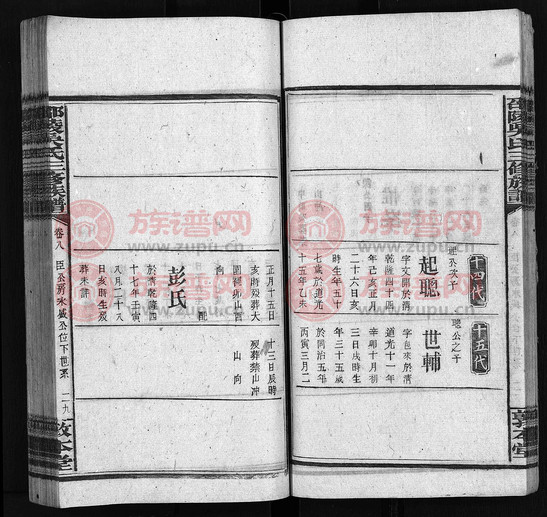 邵陵吳氏三修族譜
敦本堂
十四代
珵公次子
起聰
字文開於清
乾隆四十四
年己亥正月
二十六日亥
時生年五十
七歲於道光
十五年乙未
十五代
聰公之子
世輔
字邑來於清
道光十一年
辛卯十月初
三日戌時生
年三十五歲
於同治五年
丙寅三月二
正月十五日
亥時歿葬大
圍團班山酉
向
配
彭氏
於清乾隆四
十七年壬寅
八月二十八
日亥時生歿
葬未詳
十三日辰時
歿葬禁山冲
山向
邵陵吳氏三修族譜
卷八
臣公房永盛公位下世系
二九
敦本堂
族谱网
www.zupu.cn
族谱网
www.zupu.cn